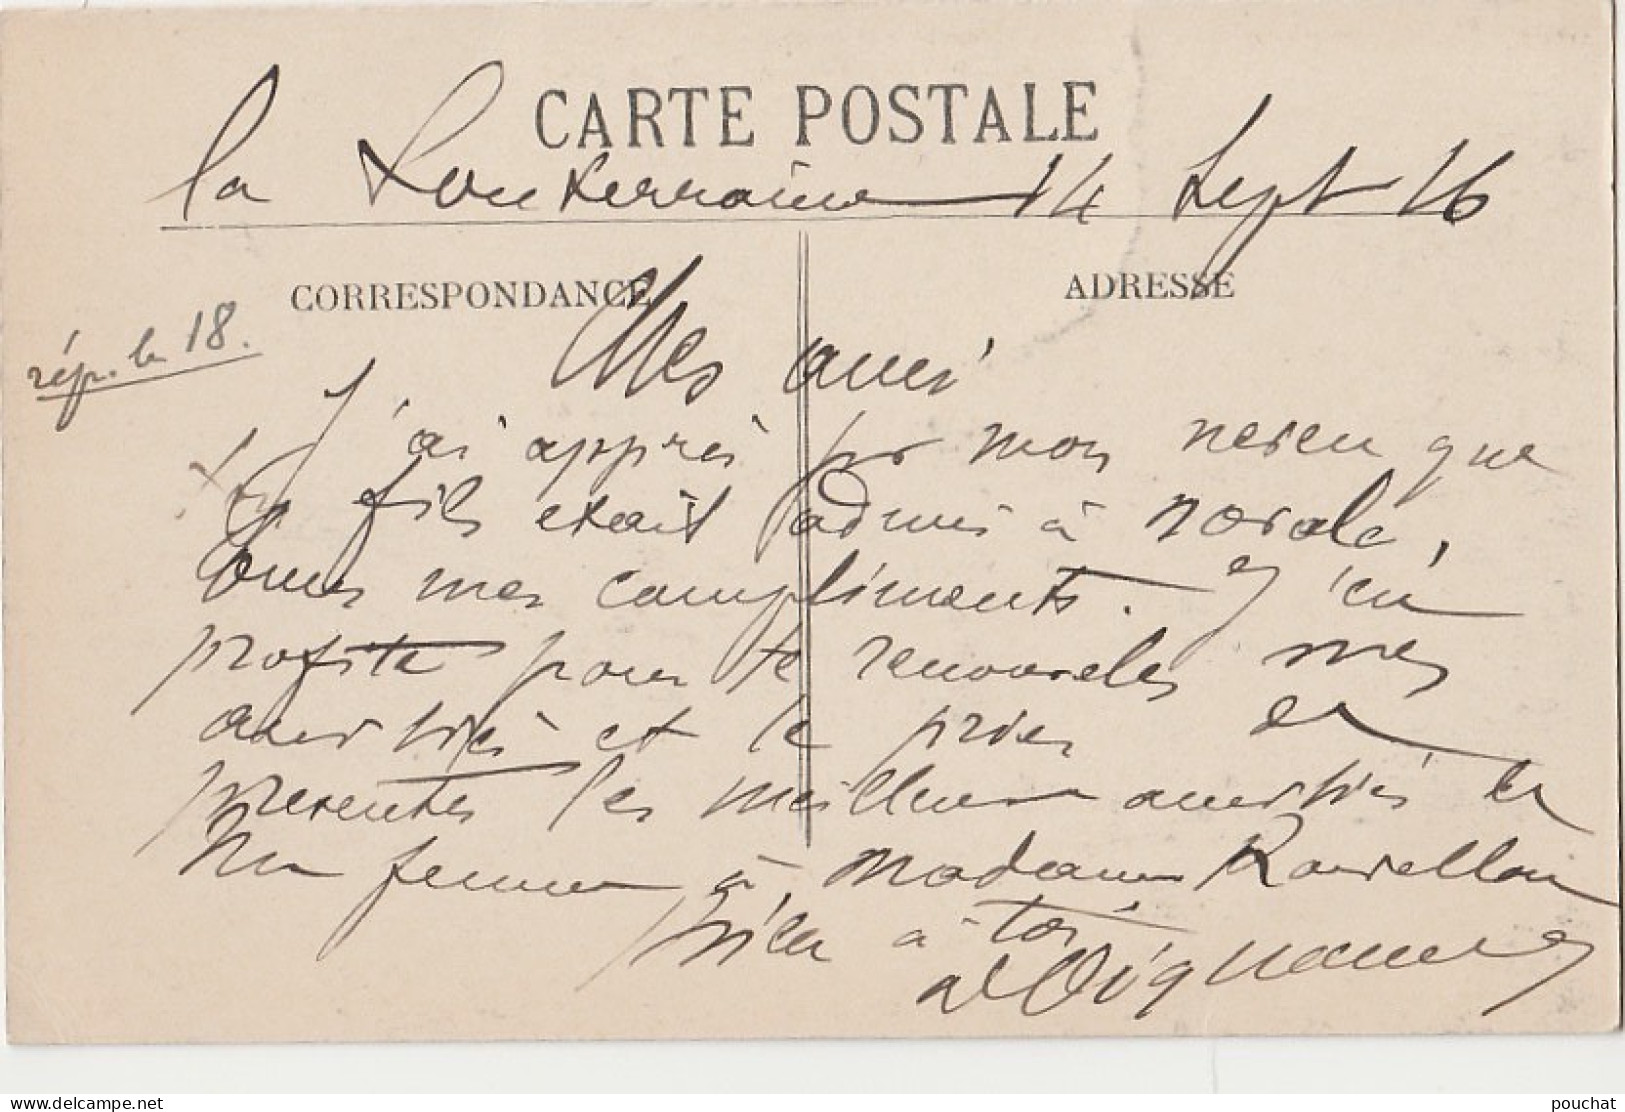 CARTE POSTALE
la Souterraine 14 Sept 16
CORRESPONDANCE
ADRESSE
rép. le 18.
Mes ami
J'ai appris pr mon neveu que
fils était admis à
mes compliments. J'en
profite pour te renouveler mes
amitiés et te prier de
presenter les meilleures amitiés de
ma femme à Madame
à toi
www.delcampe.net
pouchat